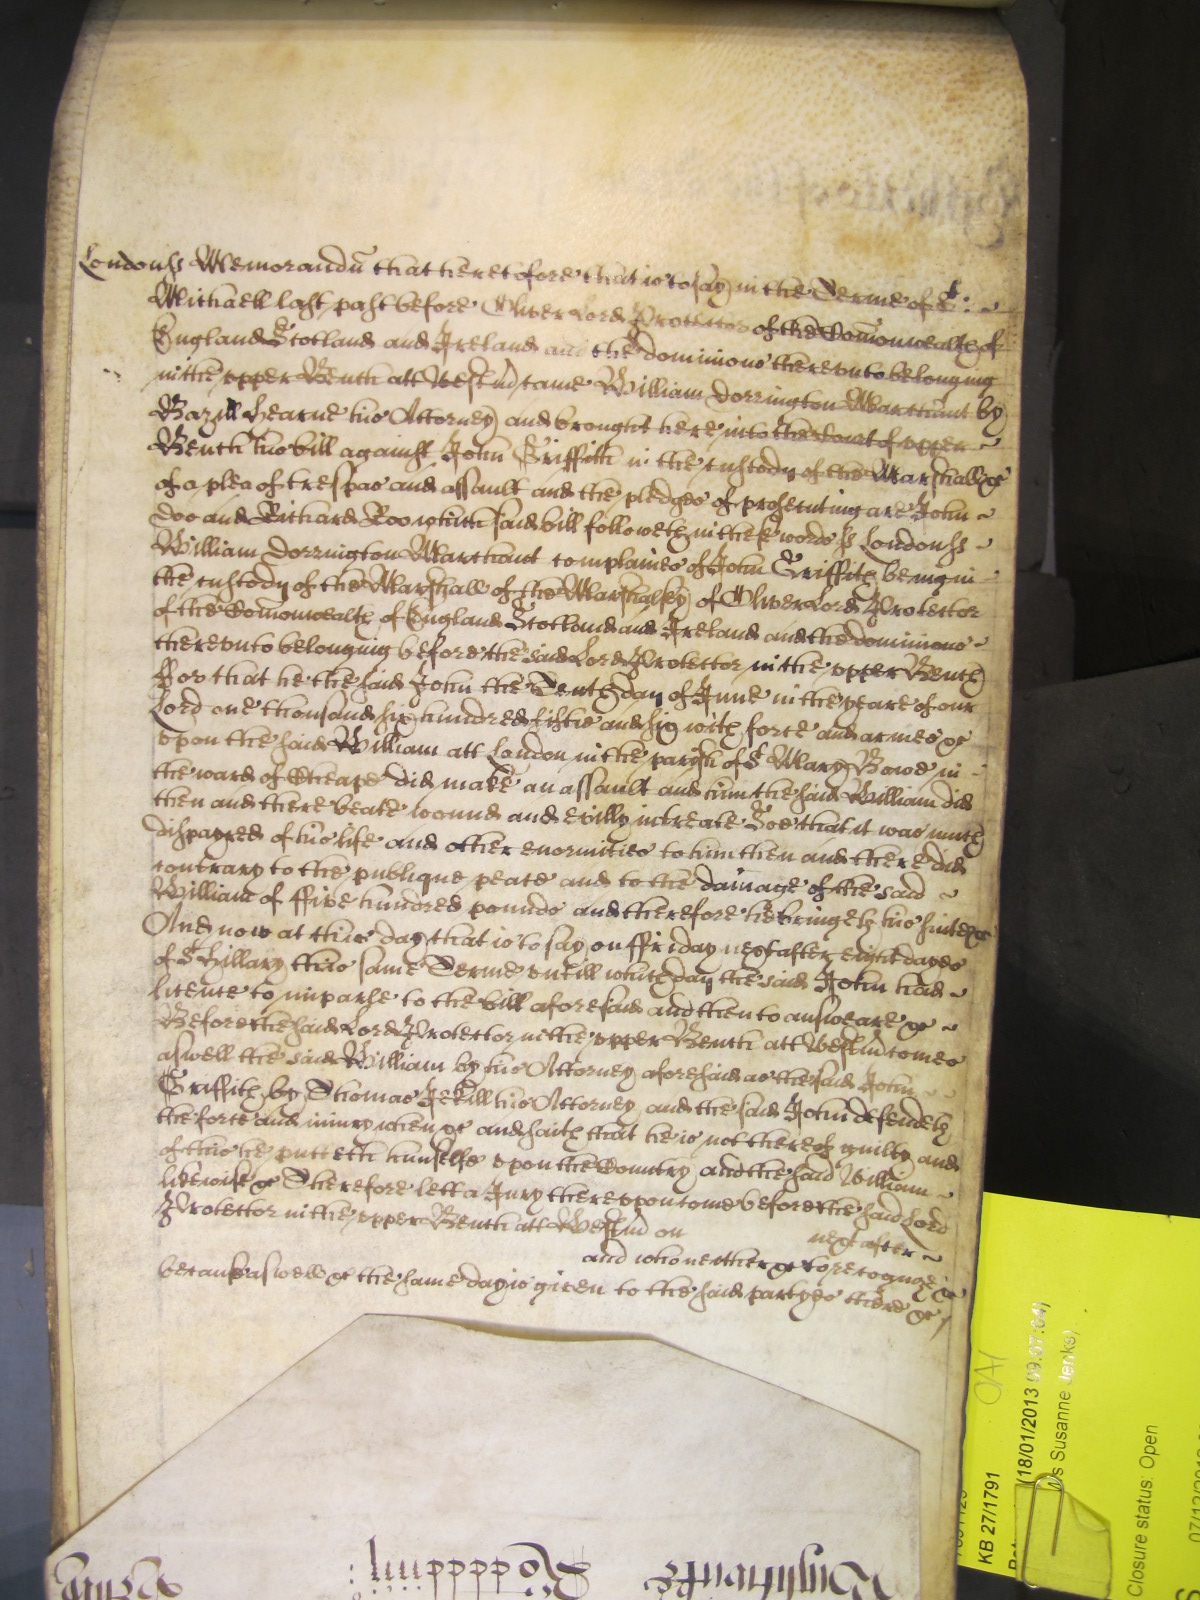 Londonss Memorandu that heretofore that is to say in the Terme of St:
Michaell last past before Oliver Lord Protector of the Comonwealth of
England Scotland and Ireland and the dominions thereunto belonging
in the upper Bench att Westm came William Dorrington Marchant by
Bazill Hearne his Attorney and brought here into the Court of upper
Bench his bill against John Griffith in the custody of the Marshall &c
of a plea of trespas and assault and the pledges of prosecuting are John
Doo and Richard Roo which said bill followeth in these words ss Londonss
William Dorrington Marchant complaines of John Griffith being in
the custody of the Marshall of the Marshalsey of Oliver Lord Protector
of the Comonwealth of England Scotland and Ireland and the dominions
thereunto belonging before the said Lord Protector in the upper Bench
For that he the said John the Tenth day of June in the yeare of our
Lord one thousand six hundred fiftie and six with force and armes &c
upon the said William att London in the parish of St Mary Bowe in
the ward of Cheape did make an assault and him the said William did
then and there beate wound and evilly intreate Soe that it was much
dispayred of his life and other enormities to him then and there did
contrary to the publique peace and to the damage of the said
William of ffive hundred pounds and therefore he bringeth his suite &c
And now at this day that is to say on ffriday next after eight dayes
of St Hillary this same Terme untill which day the said John had
licence to imparle to the bill aforesaid and then to answeare &c
Before the said Lord Protector in the upper Bench att Westm comes
aswell the said William by his Attorney aforesaid as the said John
Griffith by Thomas Jekill his Attorney and the said John defendeth
the force and iniury when &c and saith that he is not thereof guilty and
of this he putteth himselfe upon the Country and the said William
likewise &c Therefore lett a Jury thereupon come before the said Lord
Protector in the upper Bench att Westm on next after
and who neither &c to recognize &c
because aswell &c the same day is given to the said partyes there &c
KB 27/1791
(18/01/2013 09:07:04)
Susanne Jenks)
Closure status: Open